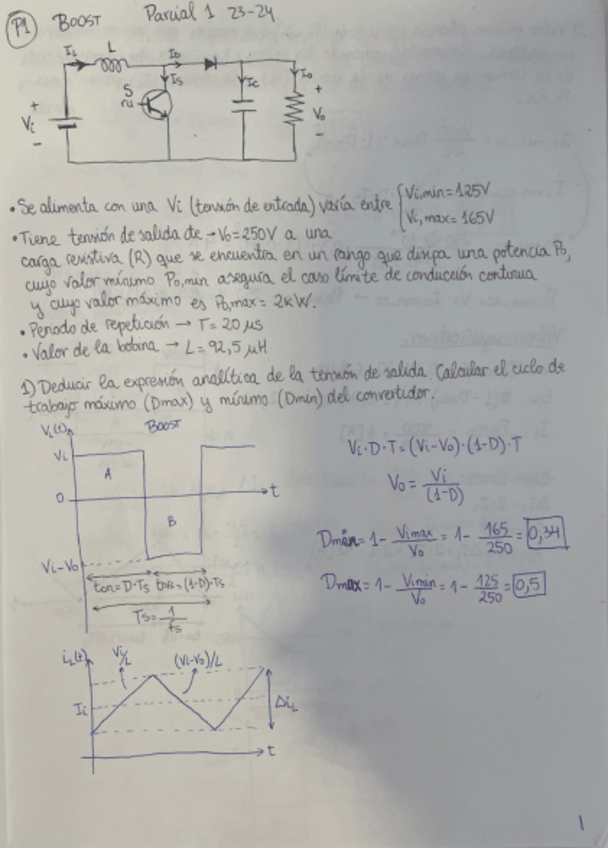 P1 BOOST Parcial 1 23-24
IL L ID IO
IS IC
S
+ Vi -
+ Vo -
• Se alimenta con una Vi (tensión de entrada) varía entre { Vi,min=125V
Vi,max=165V
• Tiene tensión de salida de → Vo=250V a una
carga resistiva (R) que se encuentra en un rango que disipa una potencia Po,
cuyo valor mínimo Po,min asegura el caso límite de conducción continua
y cuyo valor máximo es Po,max = 2kW.
• Periodo de repetición → T = 20 µs
• Valor de la bobina → L = 92,5 µH
1) Deducir la expresión analítica de la tensión de salida. Calcular el ciclo de
trabajo máximo (Dmax) y mínimo (Dmin) del convertidor.
VL(t) BOOST
Vi
A
0 t
B
Vi-Vo
ton=D·Ts toff=(1-D)·Ts
Ts=1/fs
Vi·D·T=(Vi-Vo)·(1-D)·T
Vo=Vi/(1-D)
Dmín=1-Vimax/Vo=1-165/250=0,34
Dmax=1-Vimín/Vo=1-125/250=0,5
iL(t) Vi/L (Vi-Vo)/L
Ii ΔiL
t
1